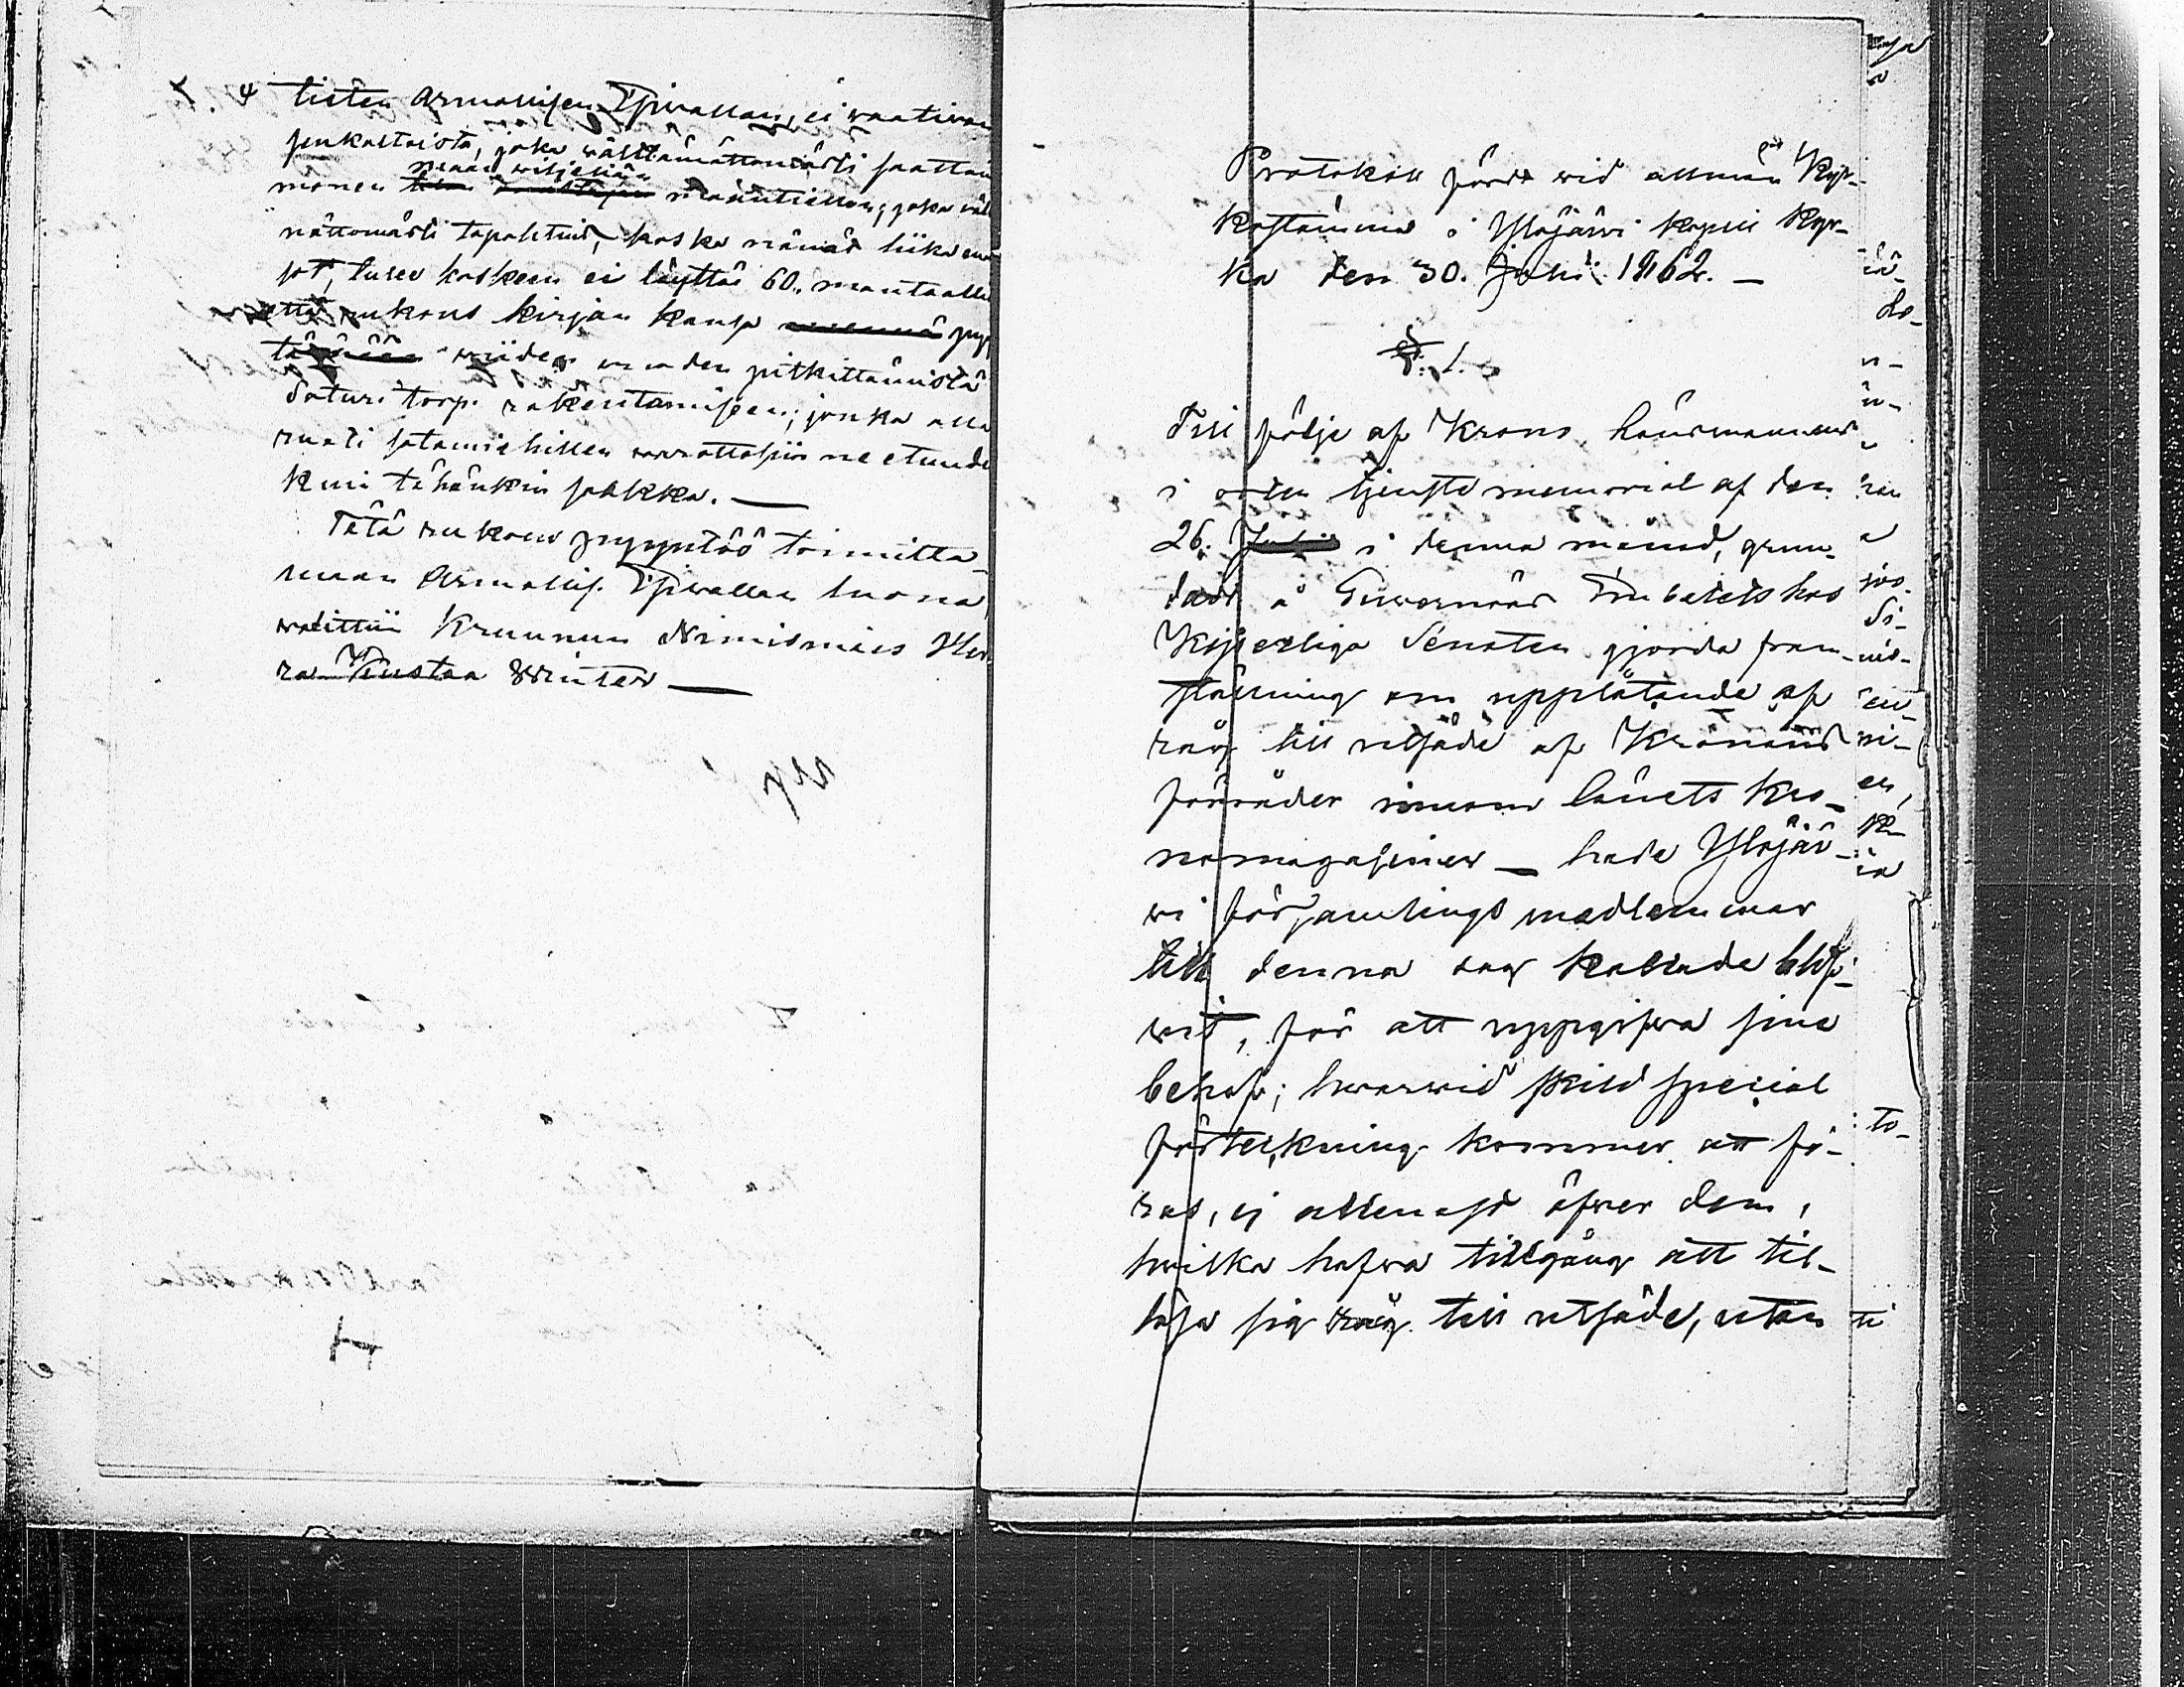 tisten Armollisen Esivallan, ei waatiwan
senkaltaista, joka wälttämättömästi saattaa
maan wiljeliän
monen maantielle, joka wält
mättömästi tapahtuis, koska nämät liika suu
set, tulee koskeen ei löyttöö 60. mantaalle
että rukous kirjan kansa pyy
wiiden vuoden pitkittämistä
Soturi torp. rakentamiseen; jonka alla
ruoti sotamiehillen warattasiin ne etuude
kuin tähänkin saakka. —
Tätä rukous pyyntöö toimitta-
maan Armollis. Esivallan luona,
walittiin Kruunun Nimismies Her
ra Kustaa Winter —
Protokoll fördt wid allmän Kyr-
kostämma i Ylöjärvi kapell kyr-
ka den 30. Juli 1862. —
§. 1.
Till följe af Krono Länsmannens
i orten tjenste memorial af den
26. i denna månad, grun-
dadt å Guvernörs Embetets hos
Kejserliga Senaten gjorda fram-
ställning om upplåtande af
råg till utsäde af Kronans
förråder innom länets kro-
nomagasiner — hade Ylöjär-
wi församlings medlemmar
till denna dag kallade blif-
wit, för att uppgifwa sina
behof; hwarwid skild special
förteckning kommer att fö-
ras, ej allenast öfwer dem,
hwilka hafwa tillgång att til-
lösa sig råg till utsäde, utan